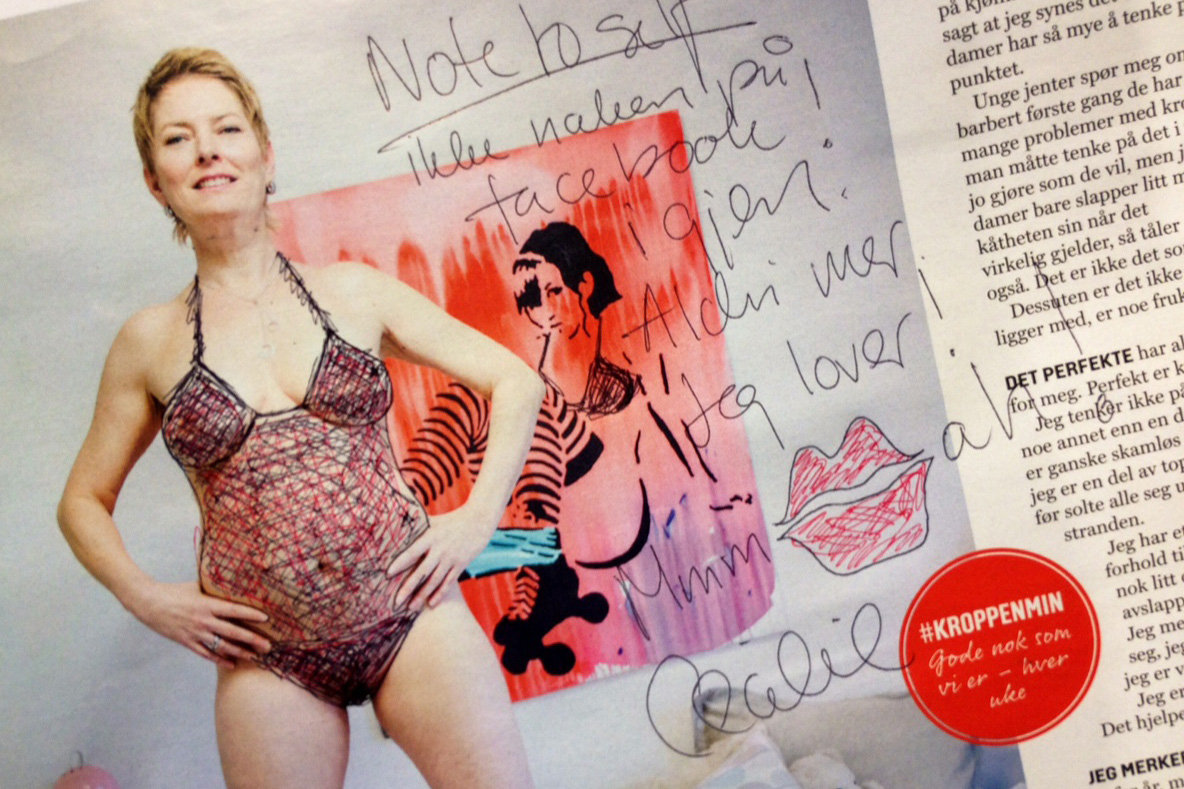 Note to self
ikke naken på
facebook
igjen!
Aldri mer!
Jeg lover!
Mmm
#KROPPENMIN
Gode nok som
vi er – hver
uke
på kjønn
sagt at jeg synes det
damer har så mye å tenke p
punktet.
Unge jenter spør meg om
barbert første gang de har
mange problemer med kro
man måtte tenke på det i
jo gjøre som de vil, men j
damer bare slapper litt m
kåtheten sin når det
virkelig gjelder, så tåler
også. Det er ikke det so
Dessuten er det ikke
ligger med, er noe fruk
DET PERFEKTE har al
for meg. Perfekt er k
Jeg tenker ikke på
noe annet enn en d
er ganske skamløs
jeg er en del av top
før solte alle seg u
stranden.
Jeg har et
forhold til
nok litt
avslapp
Jeg me
seg, jeg
jeg er v
Jeg er
Det hjelpe
JEG MERKER